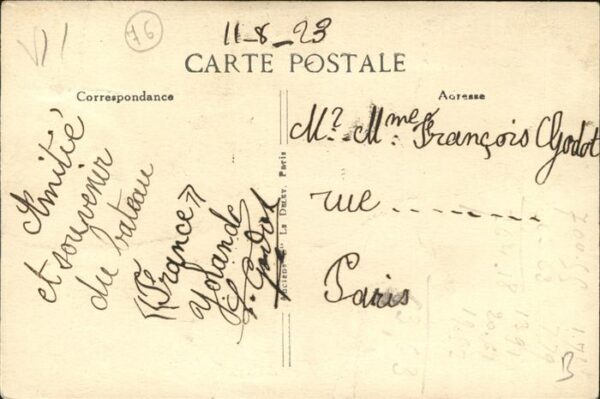 76
11-8-23
CARTE POSTALE
Correspondance
Adresse
Amitié
et souvenir
du bateau
«France»
Yolande
Godot
La Dhuy, Paris
Mr. Mme François Godot
rue ........
Paris
B